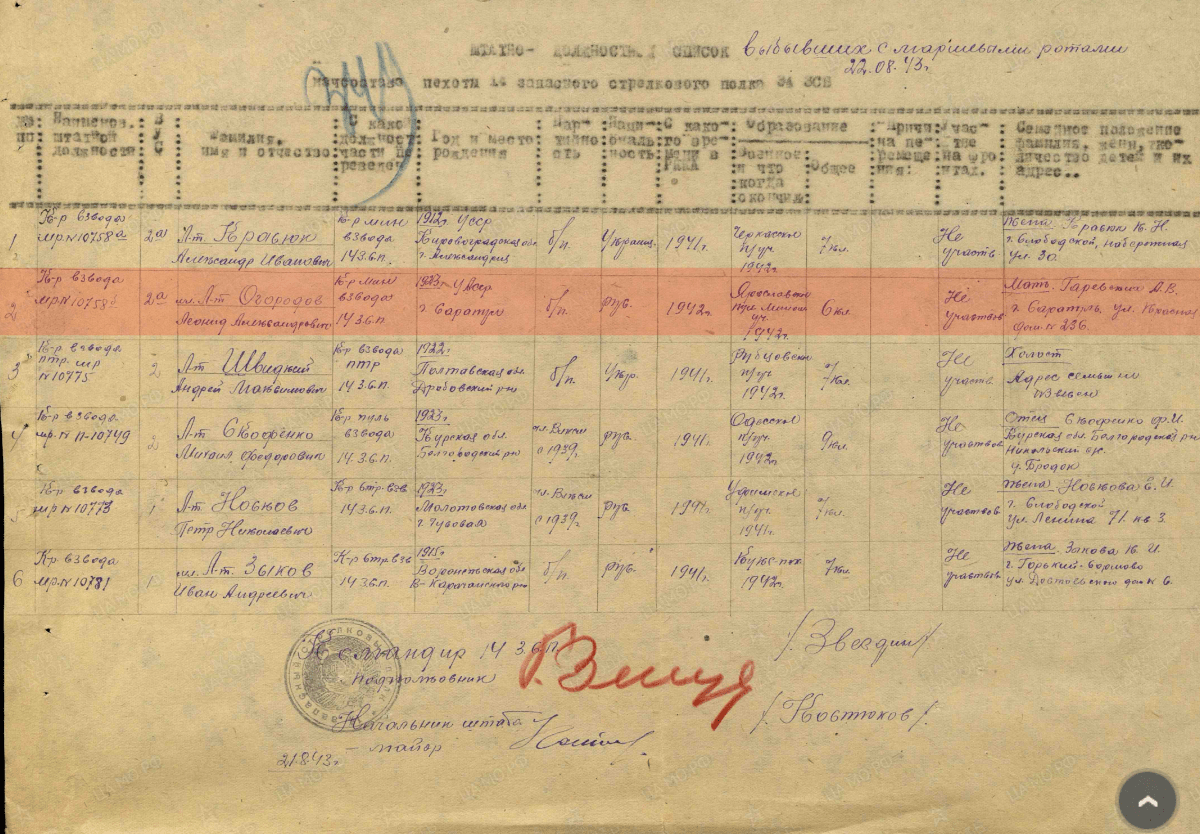 ШТАТНО- ДОЛЖНОСТН. СПИСОК выбывших с маршевыми ротами
22.08.43г.
начсостава пехоты 14 запасного стрелкового полка 34 ЗСБ
№№ пп: Наименов. штатной должности ВУС Фамилия, имя и отчество С какой должности части переведен Год и место рождения Партийность Национальность С какого времени в РККА Образование Военное и что когда окончил Общее Причина перемещения: Участие на фронтах. Семейное положение фамилия, жены, количество детей и их адрес..
1 К-р взвода мр №10758а 2а Л-т Кравюк Александр Иванович К-р мин взвода 14 З.С.П. 1912г. УССР Кировоградская обл. г. Александрия б/п. Украин. 1941г. Черкасское п/уч. 1942г. 7 кл. Не участв Жена Кравюк К. Н. г. Слободской, Набережная ул. 30
2 К-р взвода мр №10758б 2а мл. Л-т Огородов Леонид Александрович К-р мин взвода 14 З.С.П. 1923г. УАССР г. Сарапул б/п. рус. 1942г. 1942г. 6 кл. Не участвов Мать. Гаревских А.В. г. Сарапуль ул. Красная дом. № 236.
3 К-р взвода птр. мр №10775 2 Л-т Швидкий Андрей Максимович К-р взвода ПТР 14 З.С.П. 1922г. Полтавская обл. Дробовский р-н б/п. Укр. 1941г. п/уч. 1942г. 7 кл. Не участв Холост Адрес семьи
4 К-р взвода мр. № П-10749 2 Л-т Скофенко Михаил Федорович К-р пуль взвода 14 З.С.П. 1923г. Курская обл. Белгородский р-н чл. ВЛКСМ с 1939г. рус. 1941г. Одесское п/уч. 1942г. 9 кл. Не участвов Отец Скофенко Ф.И. Курская обл. Белгородский р-н Никольский с/с.
5 К-р взвода мр №10773 1 Л-т Новков Петр Николаевич К-р стр. взв 14 З.С.П. 1923г. Молотовская обл. чл. ВЛКСМ с 1939г. рус. 1941г. Уфимское п/уч. 1941г. 7 кл. Не участвов Жена Новкова Е.И. г. Слободской ул. Ленина 71. кв 3.
6 К-р взвода мр №10781 1 мл. Л-т Зыков Иван Андреевич К-р стр. взв 14 З.С.П. 1915г. Воронежская обл. б/п. рус. 1941г. 1942г. 7 кл. Не участвов Жена. К. И. г. Горький ул. Достоевского
Командир 14 З.С.П. /Звездин/
Подполковник
Начальник штаба /Костюков/.
– майор
21.8.43г.